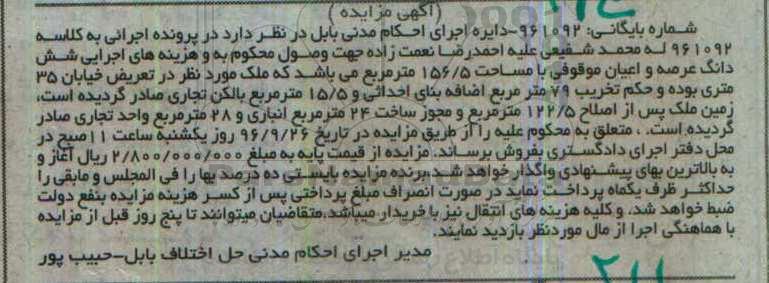 (آگهی مزایده)
شماره بایگانی: ۹۶۱۰۹۲-دایره اجرای احکام مدنی بابل در نظر دارد در پرونده اجرائی به کلاسه
۹۶۱۰۹۲ له محمد شفیعی علیه احمدرضا نعمت زاده جهت وصول محکوم به و هزینه های اجرایی شش
دانگ عرصه و اعیان موقوفی با مساحت ۱۵۶/۵ مترمربع می باشد که ملک مورد نظر در تعریض خیابان ۳۵
متری بوده و حکم تخریب ۷۹ متر مربع اضافه بنای احداثی و ۱۵/۵ مترمربع بالکن تجاری صادر گردیده است،
زمین ملک پس از اصلاح ۱۲۲/۵ مترمربع و مجوز ساخت ۲۴ مترمربع انباری و ۲۸ مترمربع واحد تجاری صادر
گردیده است. ، متعلق به محکوم علیه را از طریق مزایده در تاریخ ۹۶/۹/۲۶ روز یکشنبه ساعت ۱۱صبح در
محل دفتر اجرای دادگستری بفروش برساند. مزایده از قیمت پایه به مبلغ ۲/۸۰۰/۰۰۰/۰۰۰ ریال آغاز و
به بالاترین بهای پیشنهادی واگذار خواهد شد،برنده مزایده بایستی ده درصد بها را فی المجلس و مابقی را
حداکثر ظرف یکماه پرداخت نماید در صورت انصراف مبلغ پرداختی پس از کسر هزینه مزایده بنفع دولت
ضبط خواهد شد، و کلیه هزینه های انتقال نیز با خریدار میباشد،متقاضیان میتوانند تا پنج روز قبل از مزایده
با هماهنگی اجرا از مال موردنظر بازدید نمایند.
مدیر اجرای احکام مدنی حل اختلاف بابل-حبیب پور
۲۱۱